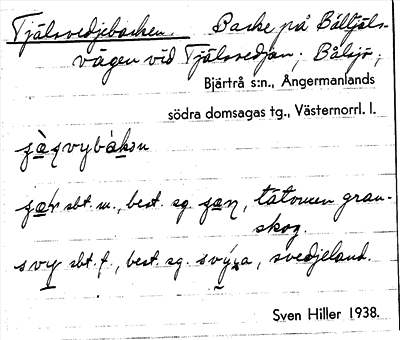 Tjälsvedjebacken. Backe på Bältjäls-
vägen vid Tjälsvedjan; Bålsjö;
Bjärtrå s:n., Ångermanlands
södra domsagas tg., Västernorrl. l.
sbt. m., best. sg. tätvuxen gran-
skog.
svy sbt. f., best. sg. svedjeland.
Sven Hiller 1938.